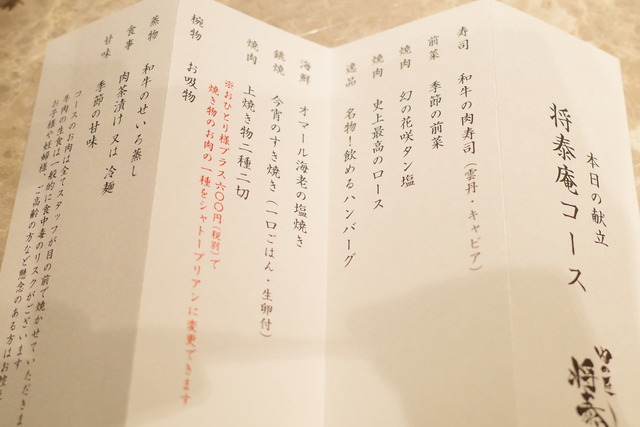 本日の献立
将泰庵コース
寿司 和牛の肉寿司（雲丹・キャビア）
前菜 季節の前菜
焼肉 幻の花咲タン塩
焼肉 史上最高のロース
逸品 名物！飲めるハンバーグ
海鮮 オマール海老の塩焼き
鍬焼 今宵のすき焼き（一口ごはん・生卵付）
焼肉 上焼き物二種二切
※おひとり様プラス六〇〇円（税別）で
焼き物のお肉の一種をシャトーブリアンに変更できます
椀物 お吸物
蒸物 和牛のせいろ蒸し
食事 肉茶漬け 又は 冷麺
甘味 季節の甘味
コースのお肉は全てスタッフが目の前で焼かせていただきま
牛肉の生食は一般的に食中毒のリスクがございます
お子様や妊婦様、ご高齢の方など懸念のある方はお控え